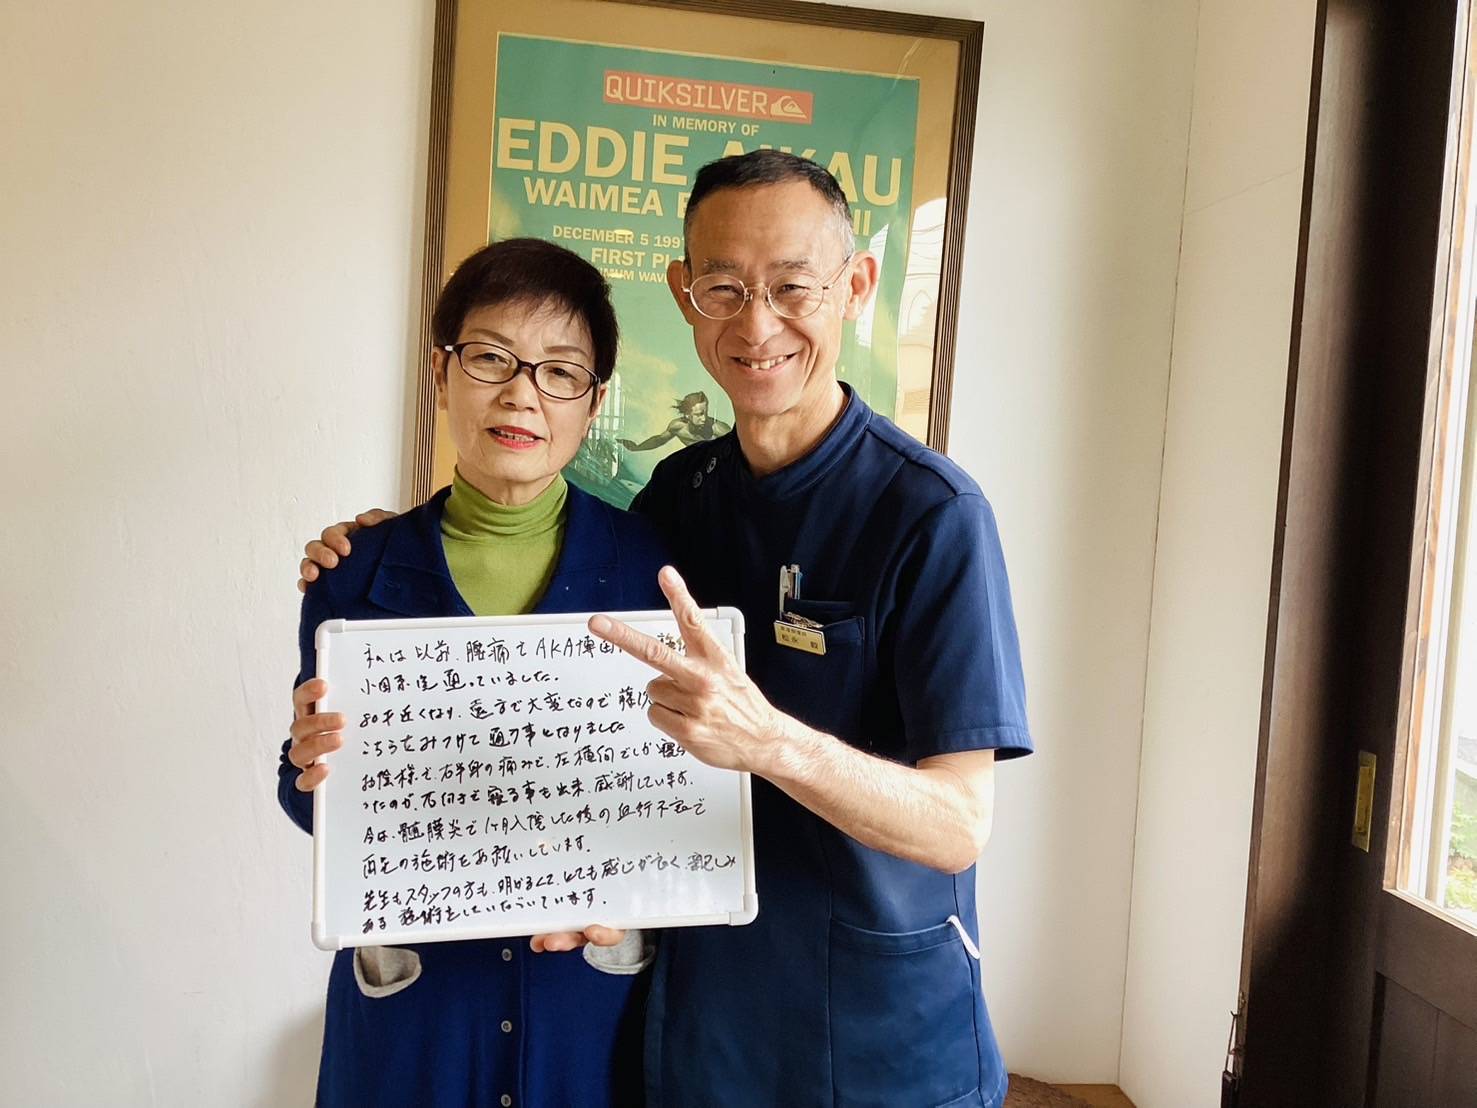 QUIKSILVER
IN MEMORY OF
EDDIE AIKAU
WAIMEA
DECEMBER 5 199
FIRST PL
MUM WAV
松永 毅
私は以前、腰痛でAKA博田
小田原迄通っていました。
80才近くなり、遠方で大変なので藤沢
こちらをみつけて通う事となりました
お陰様で、右半身の痛みで、左横向でしか寝ら
ったのが、右向きで寝る事も出来、感謝しています。
今は、髄膜炎で1ヶ月入院した後の血行不良で
両足の施術をお願いしています。
先生もスタッフの方も、明かるくて、とても感じが良く、親しみ
ある施術をしていただいています。